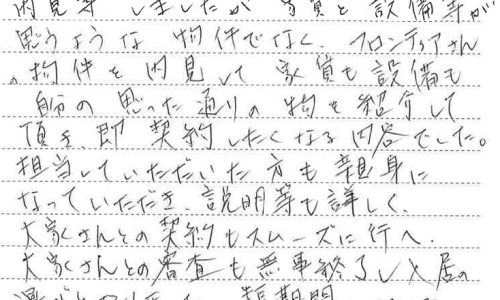 内見等 しましたが 家賃と 設備等が
思うような 物件でなく、フロンティアさん
の物件を 内見して 家賃も 設備も
自師の 思った通りの 物を 紹介して
頂き、即 契約したくなる内容でした。
担当していただいた 方も 親身に
なっていただき、説明等も詳しく、
大家さんとの契約もスムーズに行へ.
大家さんとの審査も無事終了し入居の
短期間